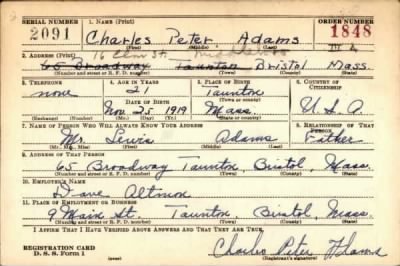 SERIAL NUMBER 1. NAME (Print) ORDER NUMBER
2091 Charles Peter Adams 1848
(First) (Middle) (Last)
2. ADDRESS (Print) 16 Elm St.
65 Broadway Taunton Bristol Mass.
(Number and street or R. F. D. number) (Town) (County) (State)
3. TELEPHONE 4. AGE IN YEARS 5. PLACE OF BIRTH 6. COUNTRY OF CITIZENSHIP
none 21 Taunton
DATE OF BIRTH (Town or county)
Nov. 25 1919 Mass. U.S.A.
(Exchange) (Number) (Mo.) (Day) (Yr.) (State or country)
7. NAME OF PERSON WHO WILL ALWAYS KNOW YOUR ADDRESS 8. RELATIONSHIP OF THAT PERSON
Mr. Lewis Adams Father
(Mr., Mrs., Miss) (First) (Middle) (Last)
9. ADDRESS OF THAT PERSON
65 Broadway Taunton, Bristol, Mass.
(Number and street or R. F. D. number) (Town) (County) (State)
10. EMPLOYER'S NAME
Dave
11. PLACE OF EMPLOYMENT OR BUSINESS
9 Main St. Taunton, Bristol, Mass.
(Number and street or R. F. D. number) (Town) (County) (State)
I AFFIRM THAT I HAVE VERIFIED ABOVE ANSWERS AND THAT THEY ARE TRUE.
REGISTRATION CARD Charles Peter Adams
D. S. S. Form 1 (over) (Registrant's signature)